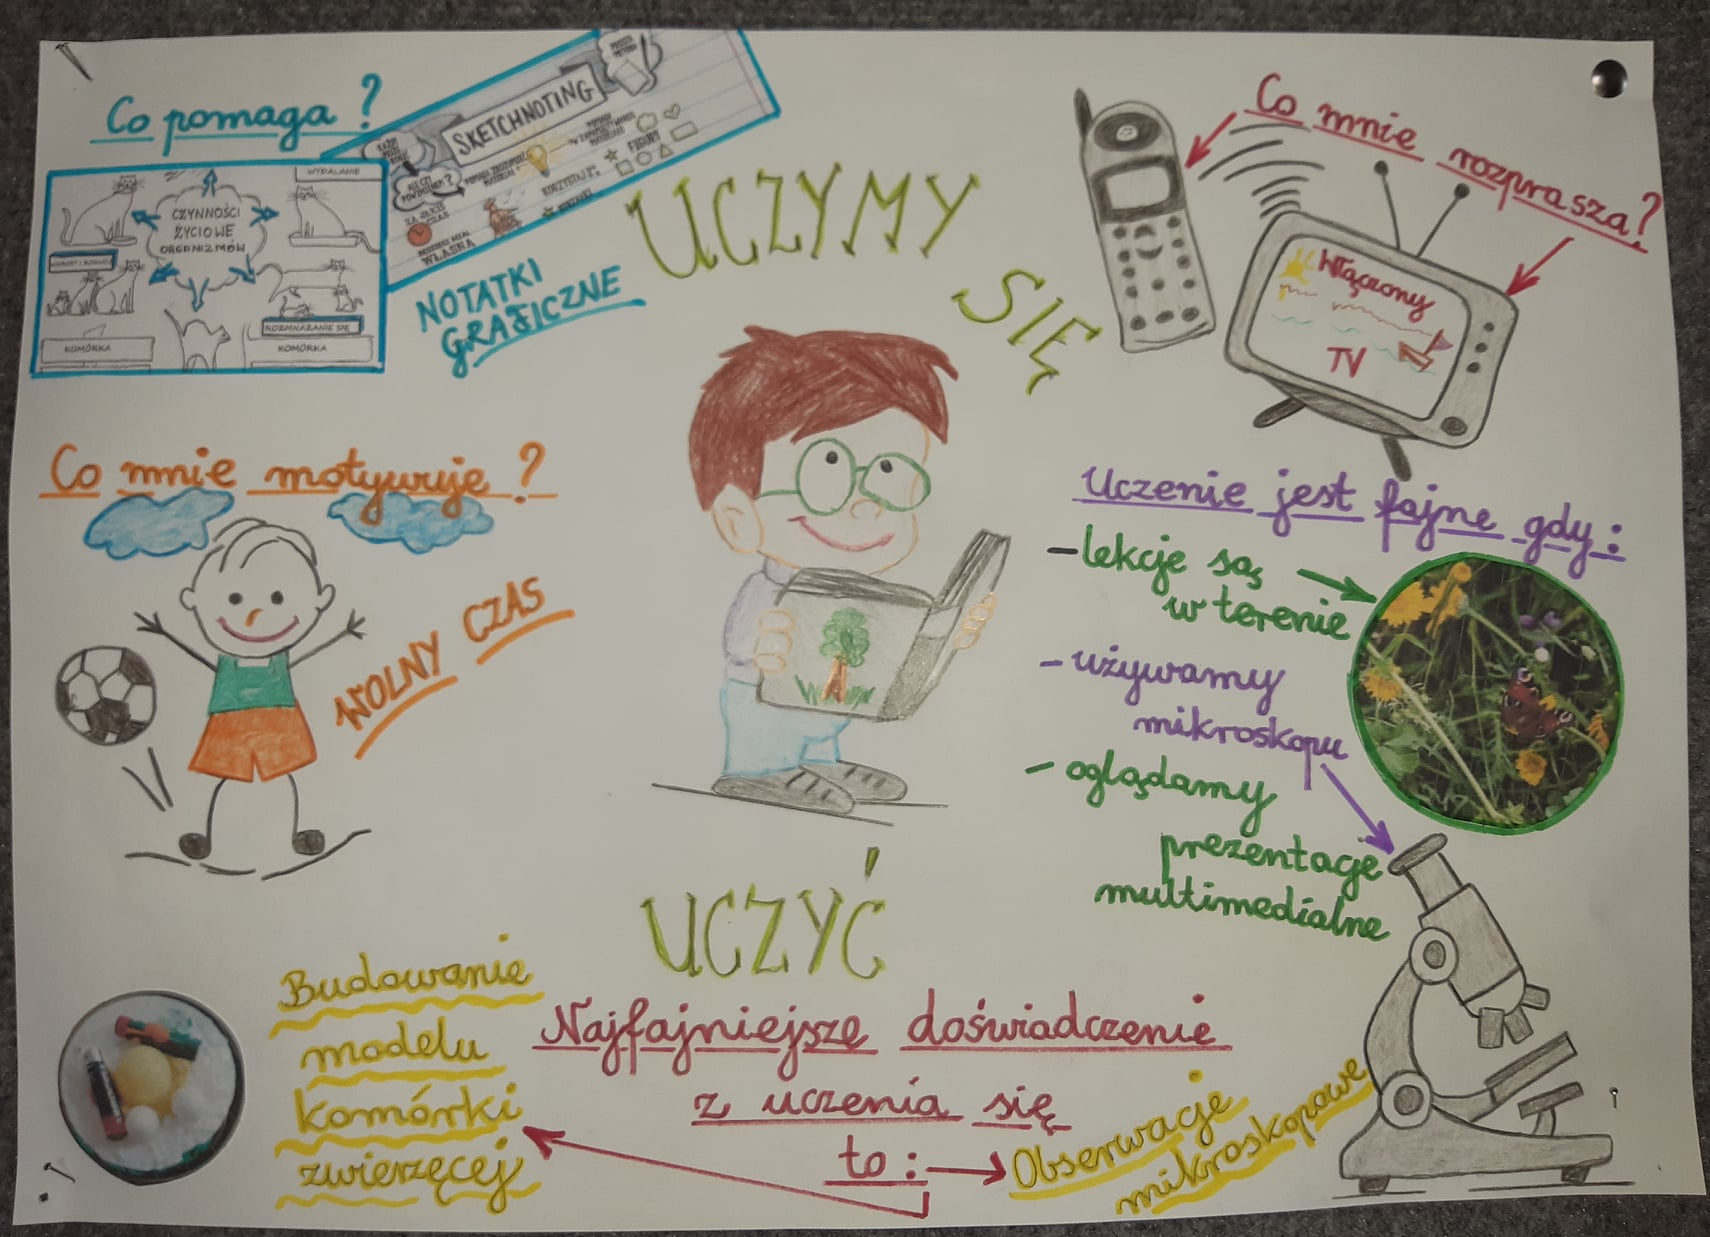 Co pomaga?
SKETCHNOTING
POMAGA ZROZUMIEĆ
MATERIAŁ
KORZYSTAJ Z:
FIGURY
WŁASNA
WYDALANIE
CZYNNOŚCI
ŻYCIOWE
ORGANIZMÓW
ROZMNAŻANIE SIĘ
KOMÓRKA
KOMÓRKA
NOTATKI
GRAFICZNE
UCZYMY
SIĘ
Co mnie rozprasza?
Włączony
TV
Co mnie motywuje?
WOLNY CZAS
Uczenie jest fajne gdy:
- lekcje są
w terenie
- używamy
mikroskopu
- oglądamy
prezentacje
multimedialne
UCZYĆ
Najfajniejsze doświadczenie
z uczenia się
to:
Budowanie
modelu
komórki
zwierzęcej
Obserwacje
mikroskopowe